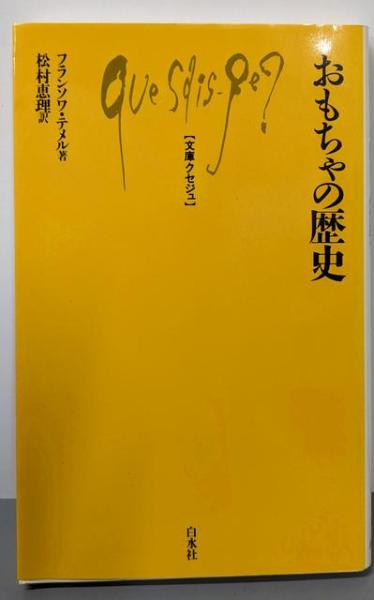 おもちゃの歴史
que sais-je?
[文庫クセジュ]
フランソワ・テメル著
松村恵理訳
白水社